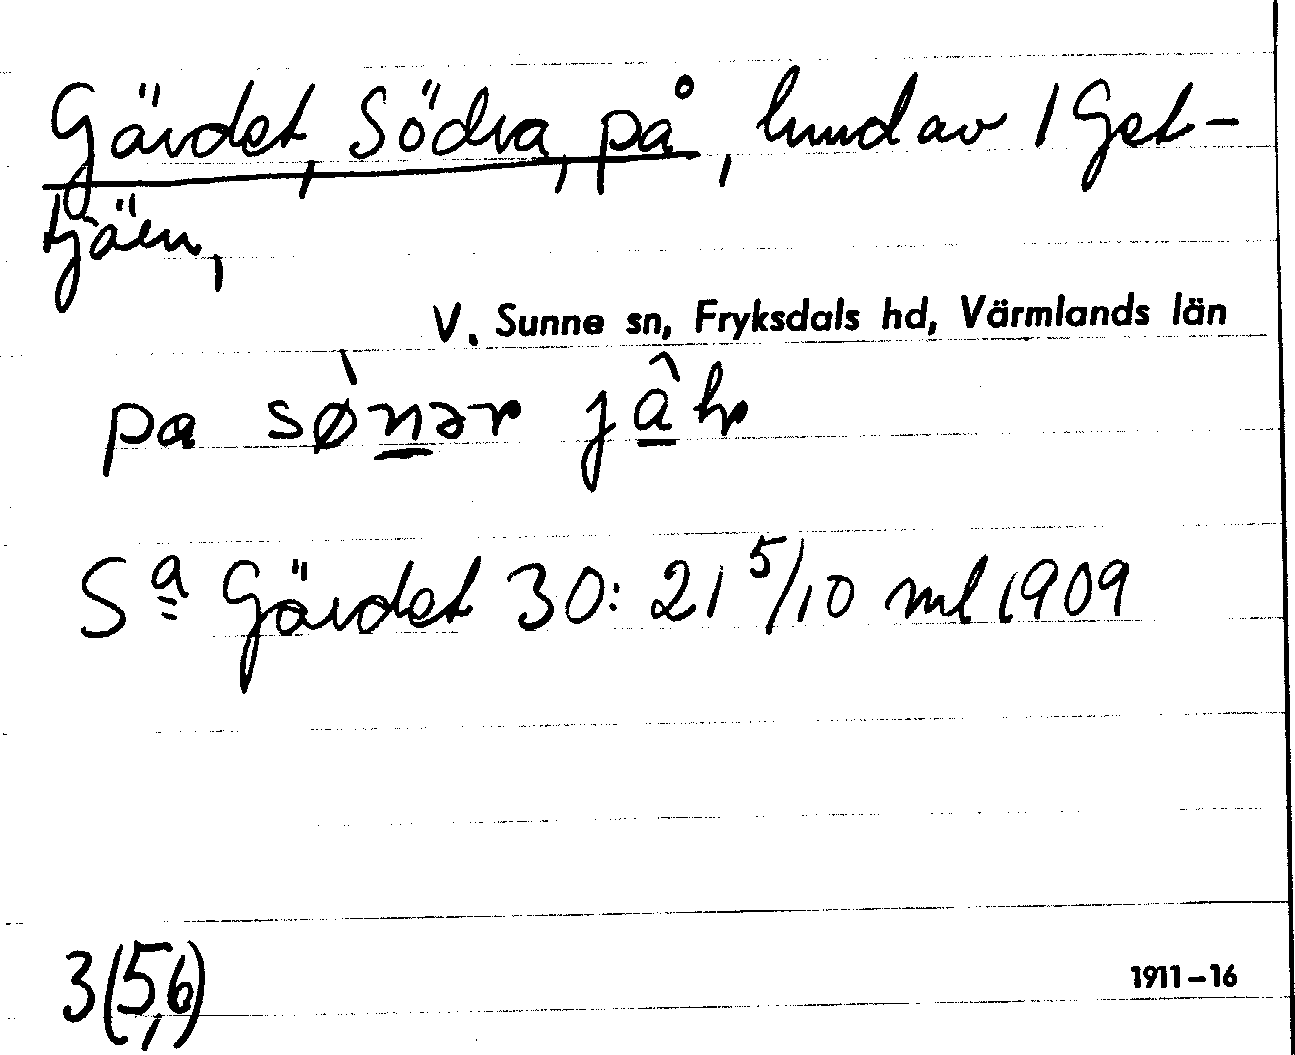 Gärdet, Södra, på, hmd av 1 Get-
tjärn,
V. Sunne sn, Fryksdals hd, Värmlands län
pa sø̀nər jâ
Sa Gärdet 30:21 5/10 ml 1909
3(5,6)
1911-16